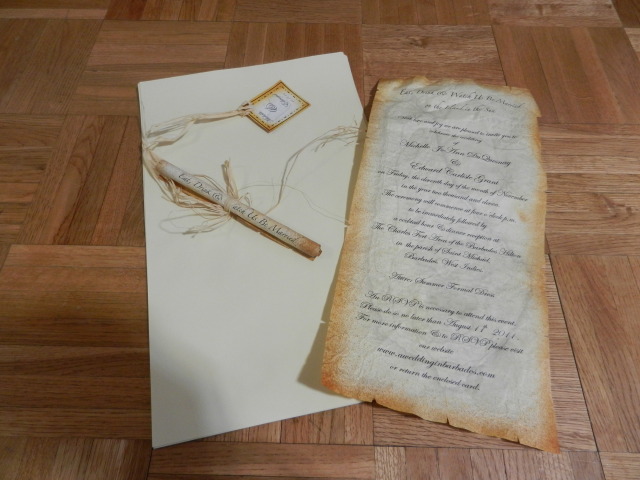 Eat, Drink & Watch Us Be Married
Eat, Drink & Watch Us Be Married
we are pleased to invite you to
celebrate the wedding
of
Michelle Jo-Ann
&
Edward Carlisle Grant
on Friday, the eleventh day of the month of November
in the year two thousand and eleven.
The ceremony will commence at four o'clock p.m.
to be immediately followed by
a cocktail hour & dinner reception at
The Charles Fort Area of the Barbados Hilton
in the parish of Saint Michael,
Barbados, West Indies.
Attire: Summer Formal Dress
An RSVP is necessary to attend this event.
Please do so no later than August 11th 2011.
For more information & to RSVP please visit
our website
www.aweddinginbarbados.com
or return the enclosed card.